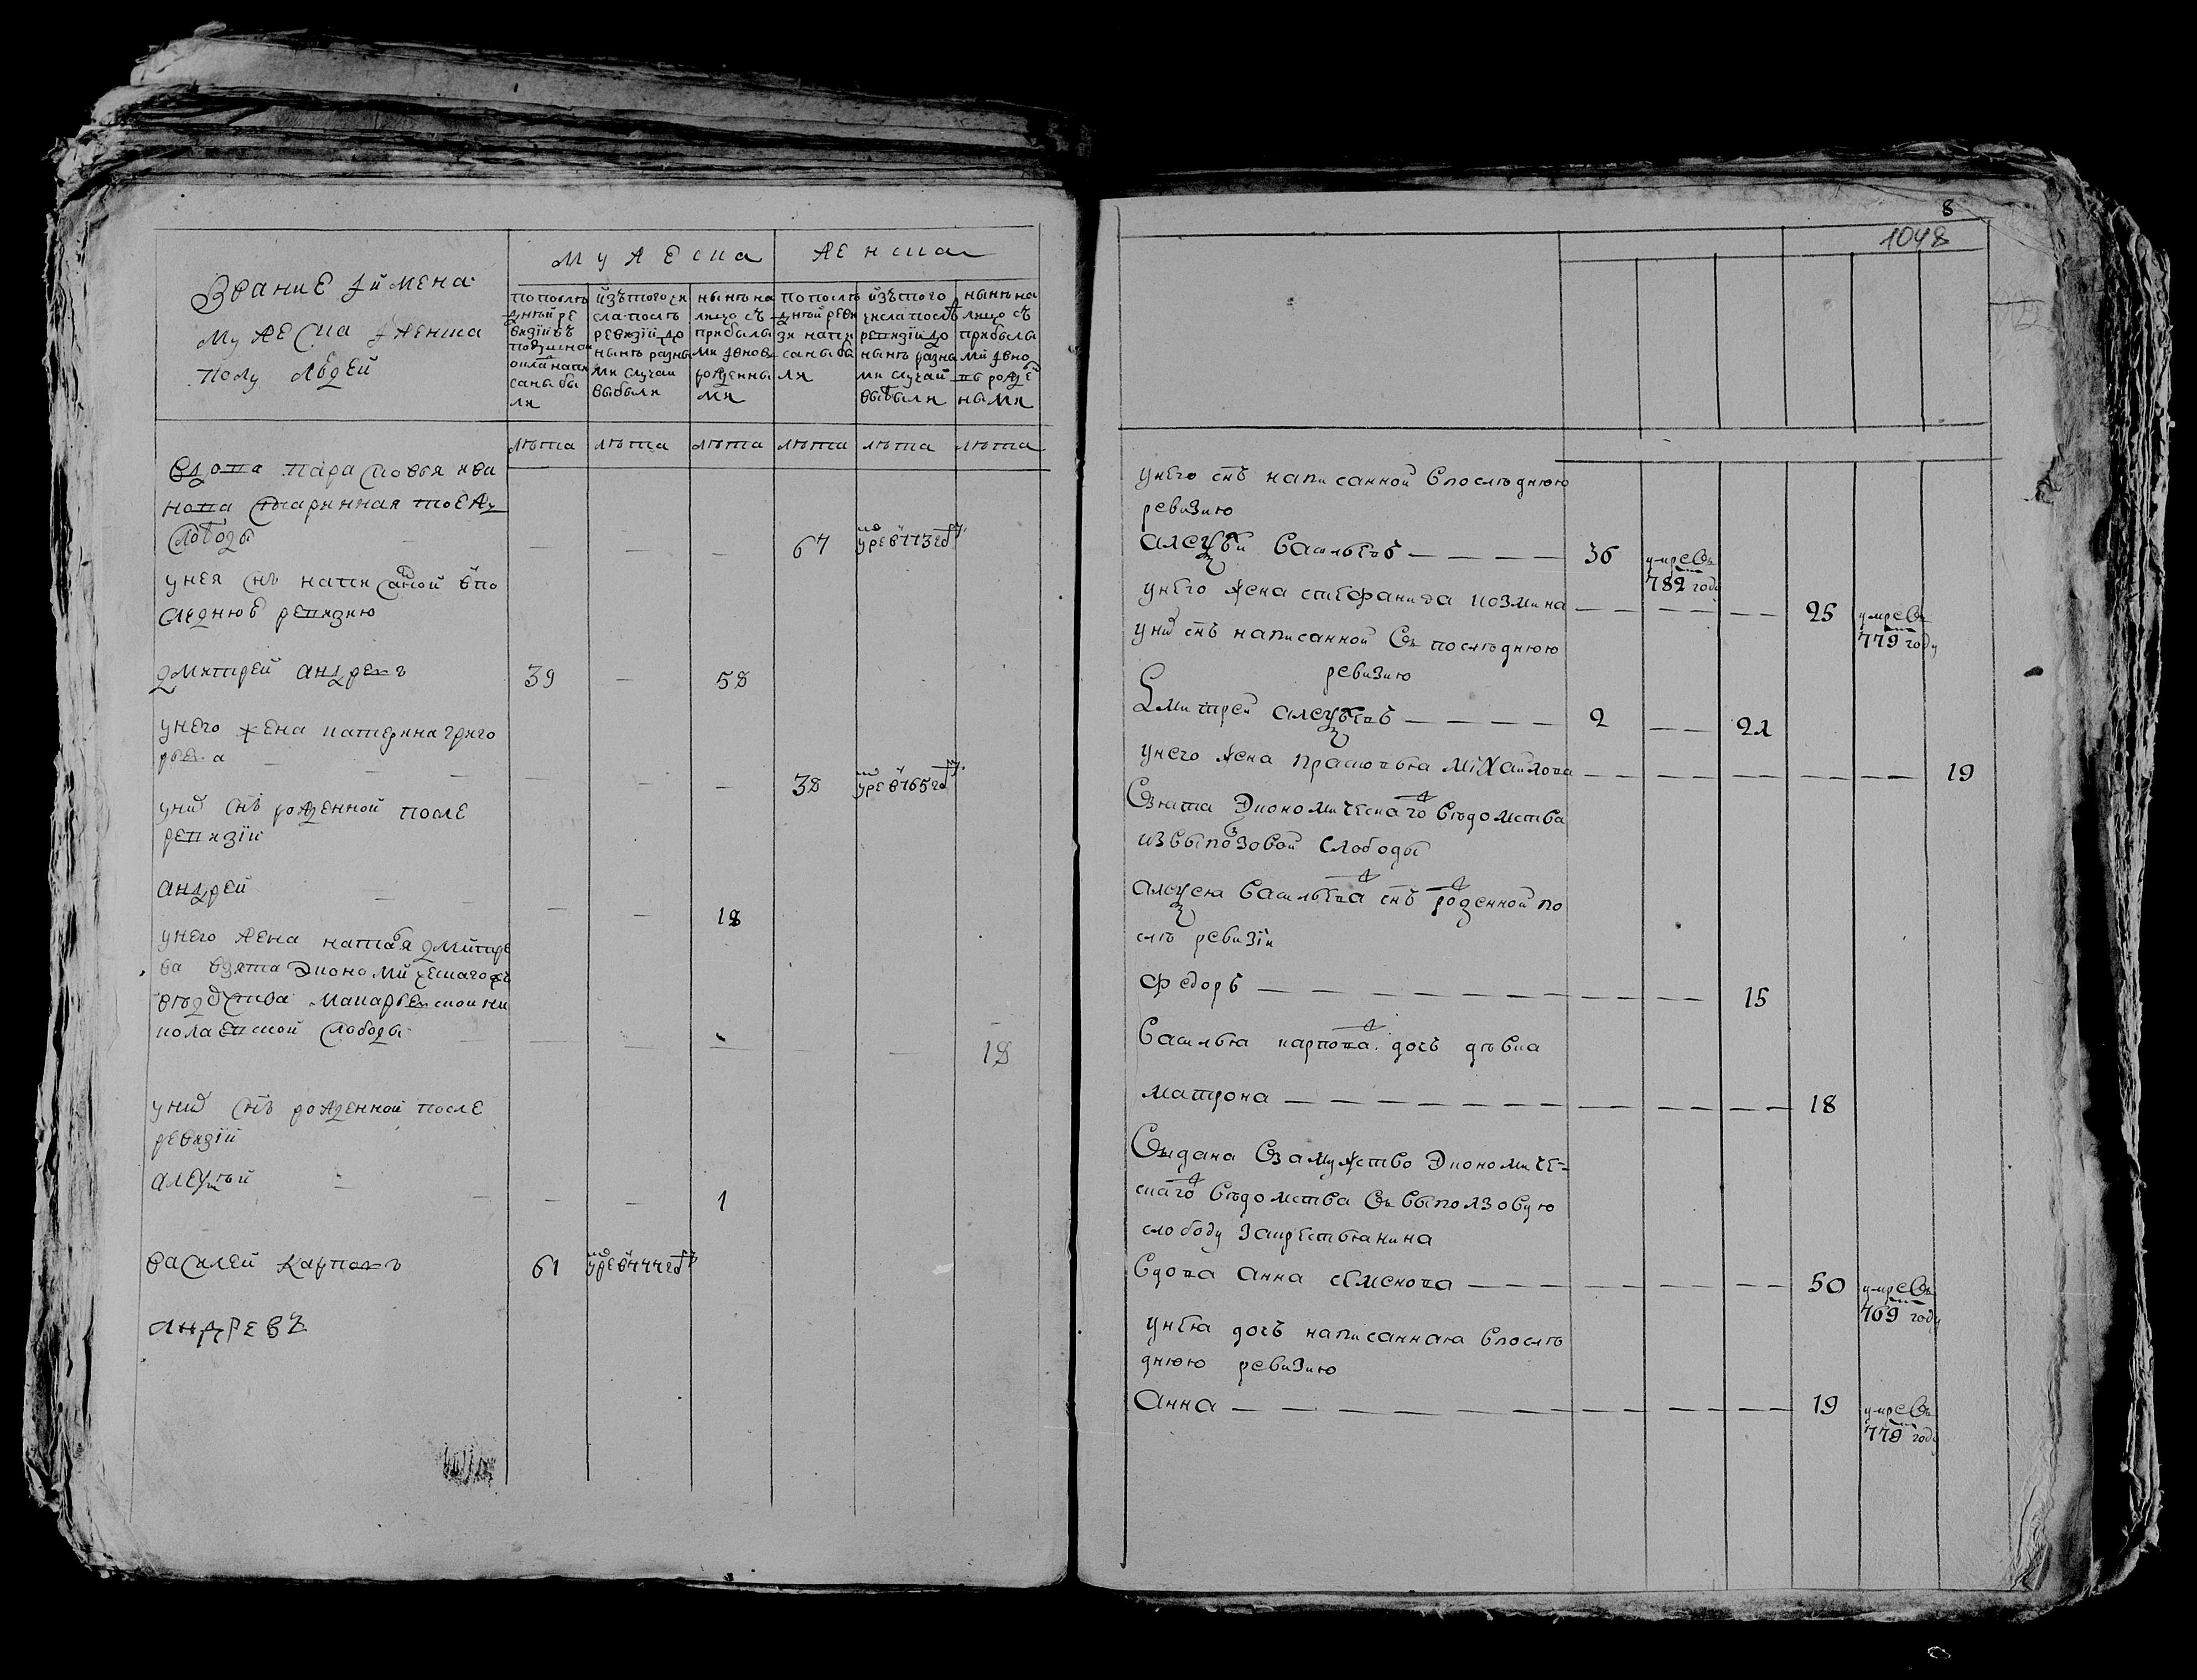 Звание и имена
мужеска и женска
полу людей
мужеска
женска
по послѣ
дней ре
визїи въ
подушной
окладъ напи
саны бы
ли
изъ того чи
сла послѣ
ревизїи до
нынѣ разны
ми случаи
выбыли
нынѣ на
лицо съ
прибылы
ми и внов
рожденны
ми
по послѣ
дней реви
зи напи
саны бы
ли
изъ того
числа послѣ
ревизїи до
нынѣ разны
ми случаи
выбыли
нынѣ на
лицо съ
прибылы
ми и вно
въ рожде
ными
лѣта лѣта лѣта лѣта лѣта лѣта
вдова парасковья ива
нова старинная тое жъ
слободы — — — 67 умре в 773 год
у нея снъ написаной в по
следнюю ревизию
дмитрей андревъ 39 — 58
у него жена катерина григо
рьева — — — 38 умре в 765 год
у них снъ рожденной после
ревизїи
андрей — — 18
у него жена наталья дмитре
ва взята экономическаго
вѣдомства макарьевской ни
колаевской слободы — — — — 18
у них снъ рожденной после
ревизїи
алеѯѣй — — 1
василей карповъ 61 умре в 777 год
андревъ
8
1048
у него снъ написанной в последнюю
ревизию
алеѯѣй васильевъ — — — — 36 умре въ
782 году
у него жена стефанида козмина — — — — 25 умре въ
779 году
у них снъ написанной въ последнюю
ревизию
Дмитрей алеѯѣевъ — — — — 2 — 21
у него жена прасковья міхаилова — — — — — — 19
Взята экономическаго вѣдомства
из выползовой слободы
алеѯея васильева снъ рожденной по
слѣ ревизїи
федоръ — — — — — — 15
Василья карпова дочь дѣвка
матрона — — — — — — 18
Выдана в замужство экономиче=
скаго вѣдомства въ выползовую
слободу за крестьянина
вдова анна семенова — — — — 50 умре въ
769 году
у нея дочь написанная в послѣ
днюю ревизию
анна — — — — — — 19 умре въ
779 году